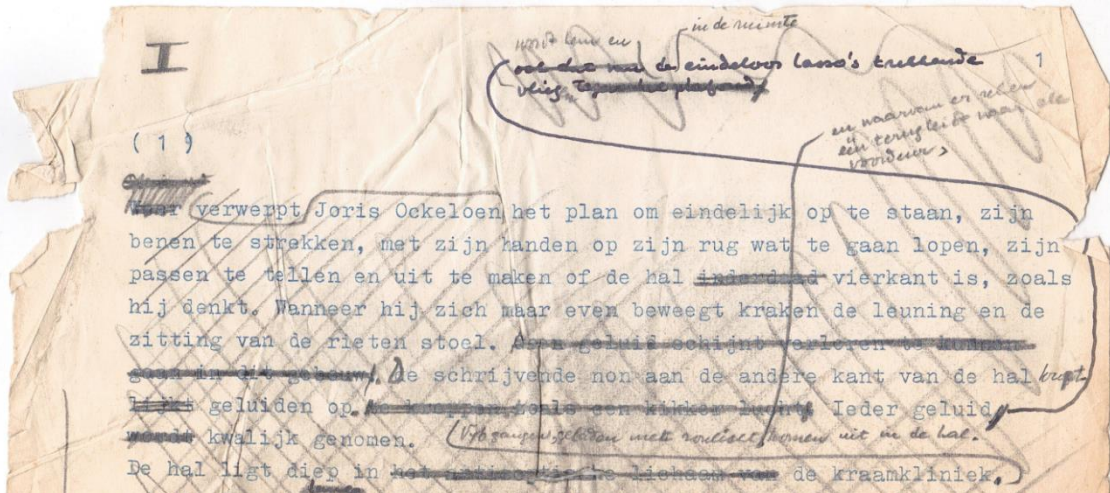 I
1
wordt hem en in de ruimte
de eindeloos lasso's trekkende
vlieg
en waarvan er
één terugleidt naar de
voordeur,
(1)
verwerpt Joris Ockeloen het plan om eindelijk op te staan, zijn
benen te strekken, met zijn handen op zijn rug wat te gaan lopen, zijn
passen te tellen en uit te maken of de hal inderdaad vierkant is, zoals
hij denkt. Wanneer hij zich maar even beweegt kraken de leuning en de
zitting van de rieten stoel. Geen geluid schijnt verloren te kunnen
gaan in dit gebouw. De schrijvende non aan de andere kant van de hal
lijkt geluiden op. Ieder geluid
wordt kwalijk genomen. (Vijf gangen, komen uit in de hal.
De hal ligt diep in de kraamkliniek.